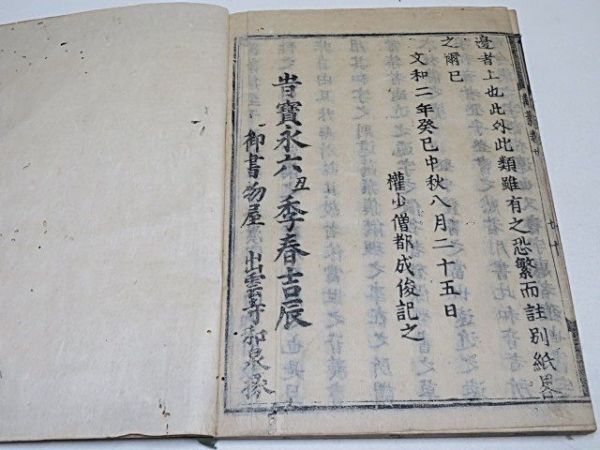 邊者上也此外此類雖有之恐繁而註別紙畧
之爾已
文和二年癸巳中秋八月二十五日
權少僧都成俊記之
旹寳永六丑季春吉辰
御書物屋 出雲寺和泉掾